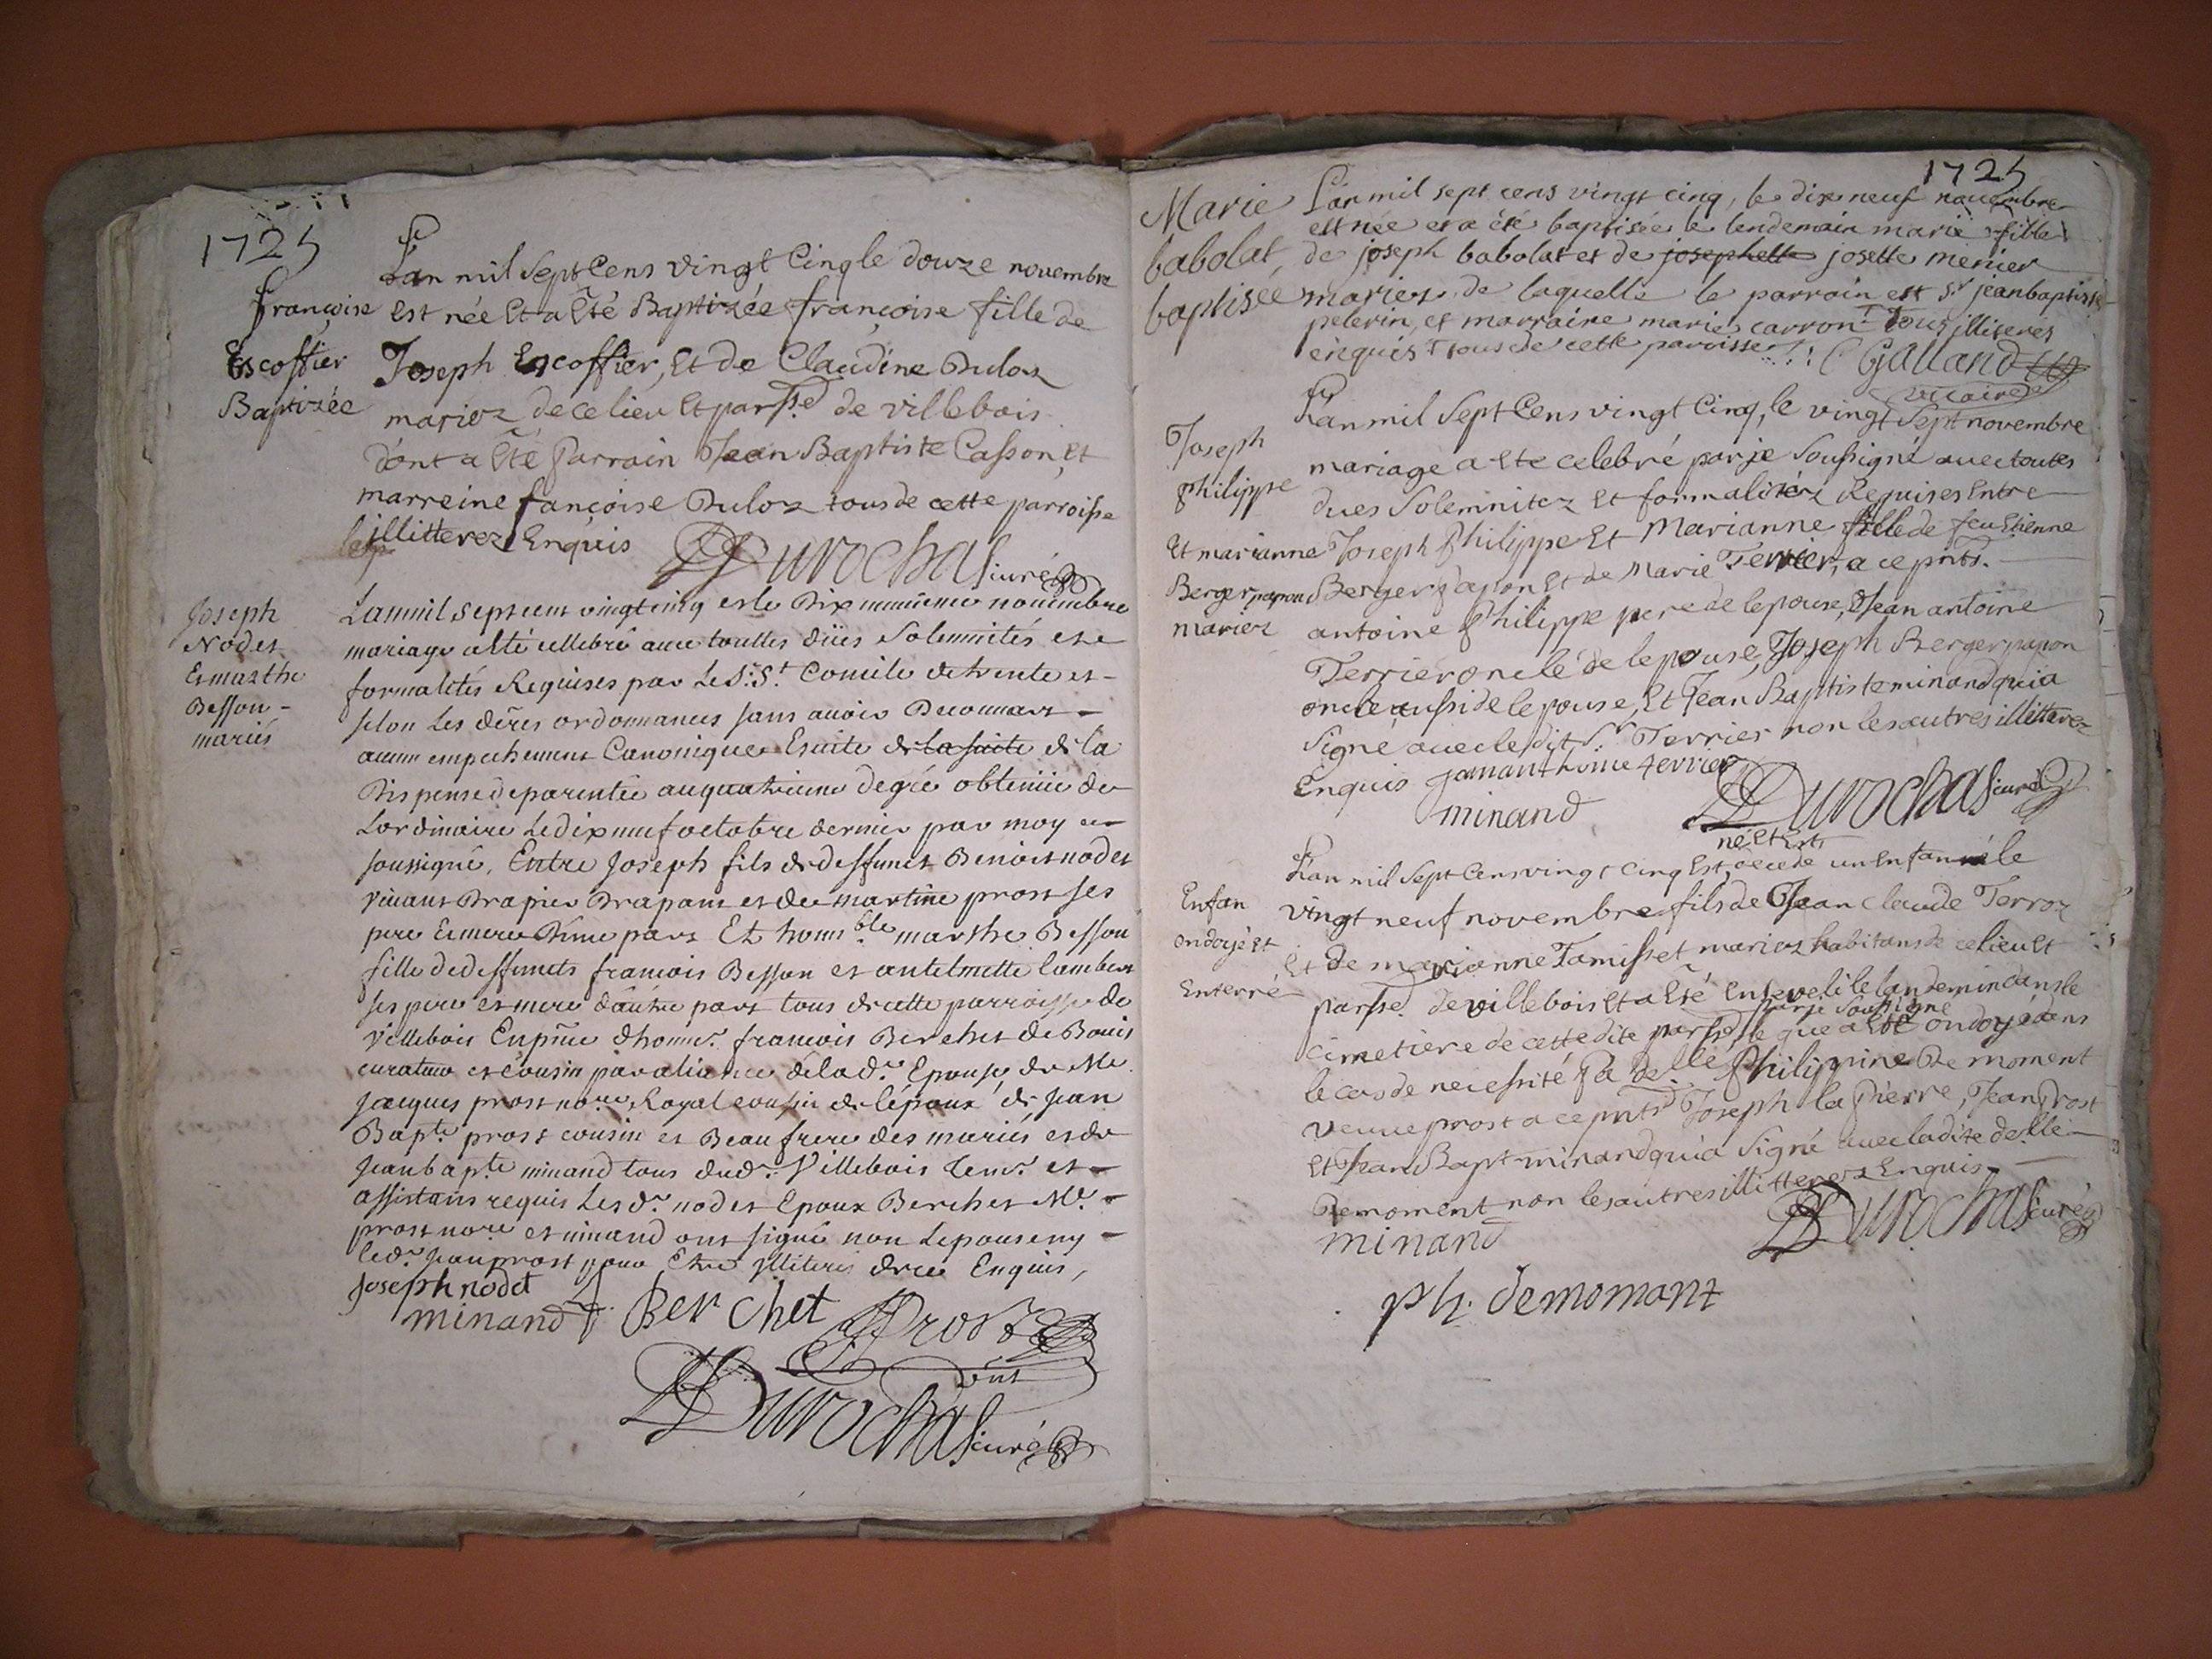 1725
Lan mil Sept Cens vingt Cinq le douze novembre
françoise
Est née Et a Eté Baptizée françoise fille de
Escoffier
Joseph Escoffier, Et de Claudine Duloz
Baptizée
mariez de ce lieu Et parsse. de villebois
dont a Eté Parrain Jean Baptiste Casson, Et
marreine françoise Duloz tous de cette parroisse
illitterez Enquis
Durochas curé
Joseph
Nodet
Et marthe
Besson -
mariés
Lan mil sept cent vingt cinq et le Dix neuvieme novembre
mariage a Eté cellebré avec touttes düës Solemnités et
formalités Requises par Le S: St Concile de trente et -
selon Les dêres ordonnances sans avoir Reconnu -
aucun empechement Canonique Ensuite de la suite de la
Dispense de parentée au quatrieme degré obtenüe de
Lordinaire Le dix neuf octobre dernier par moy
soussigné, Entre Joseph fils de deffunct Benoit nodet
vivant Drapier Drapant et de martine prost ses
pere Et mere d'une part Et honnble marthe Besson
fille de deffuncts francois Besson et antelmette lambert
ses pere et mere dautre part tous de cette parroisse de
Villebois En pnce dhonn.r francois Berchet de Bouis
curateur et Cousin par aliance de la d.e Epouse de Me.
Jacques prost no.re Royal cousin de lépoux de Jean
Bapte prost cousin et Beau frere des mariés et de
Jean bapte minand tous dud. Villebois temr. et -
assistans requis Les d. nodet Epoux Berchet Me. -
prost no.re et minand ont signé non Lepouse ny -
led. Jean prost pour Etre illiteré de ce Enquis,
Joseph nodet
minand Berchet Prost
Durochas curé
1725
Marie
babolat,
baptisée
L'an mil sept cens vingt cinq, le dix neuf novembre
est née et a été baptisée le lendemain marie fille
de joseph babolat et de josephette josette menier
mariez de laquelle le parrain est Sr jean baptiste
pelerin, et marraine marie carron. Tous illiteres
enquis tous de cette paroisse. C Galland
vicaire
Joseph
philippe
Et marianne
Berger papon
mariez
Lan mil Sept Cens vingt Cinq, le vingt Sept novembre
mariage a Ete celebré par je Soussigné avec toutes
dues Solemnitez Et formalitez Requises Entre
Joseph Philippe Et Marianne fille de feu Etienne
Berger papon Et de Marie Terrier, a ce pnts. -
antoine Philippe pere de lepoux, Jean antoine
Terrier oncle de lepouse, Joseph Berger papon
oncle aussi de lepouse, Et Jean Baptiste minand qui a
signé avec le dit Sr Terrier non les autres illitterez
Enquis jananthoine terrier
minand Durochas curé
Enfan
ondoyé Et
Enterré
né Et Est
Lan mil Sept Cens vingt Cinq Est decedé un Enfan né le
vingt neuf novembre fils de Jean Claude Terroz
Et de marianne Tamisset mariez habitans de ce lieu Et
parsse. de villebois Et a Eté Enseveli le landemin dans le
par je Soussigné
Cimetiere de cette dite parsse, le que a Eté ondoyé dans
le cas de necessité Pa delle Philippine De moment
veuve prost a ce pnts Joseph la Pierre, Jean Prost
Et Jean Bapt minand qui a Signé avec la dite delle -
Demoment non les autres illitterez Enquis. -
minand Durochas curé
ph. demomant